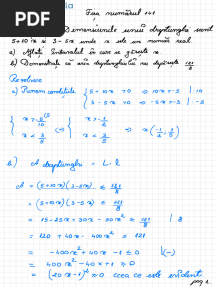 PDF
Fișa numărul 141
Dimensiunile unui dreptunghi sunt
5+10x și 3-5x unde x este un număr real
a) Aflați intervalul în care se găsește x.
b) Demonstrați că aria dreptunghiului nu depășește 121/8
Rezolvare
a) Punem condițiile { 5+10x > 0 ⇔ 10x > -5 |:10
{ 3-5x > 0 -5x > -3 |:(-5)
b) A dreptunghi = L · l
A = (5+10x)(3-5x) ≤ 121/8
= (5+10x)(3-5x) ≤ 121/8
= 15-25x+30x-50x² ≤ 121/8 | 8
= 120+40x-400x² ≤ 121
= -400x²+40x-1 ≤ 0 |(-)
= 400x²-40x+1 ≥ 0
= (20x-1)² ≥ 0 ceea ce este evident.
pag 1